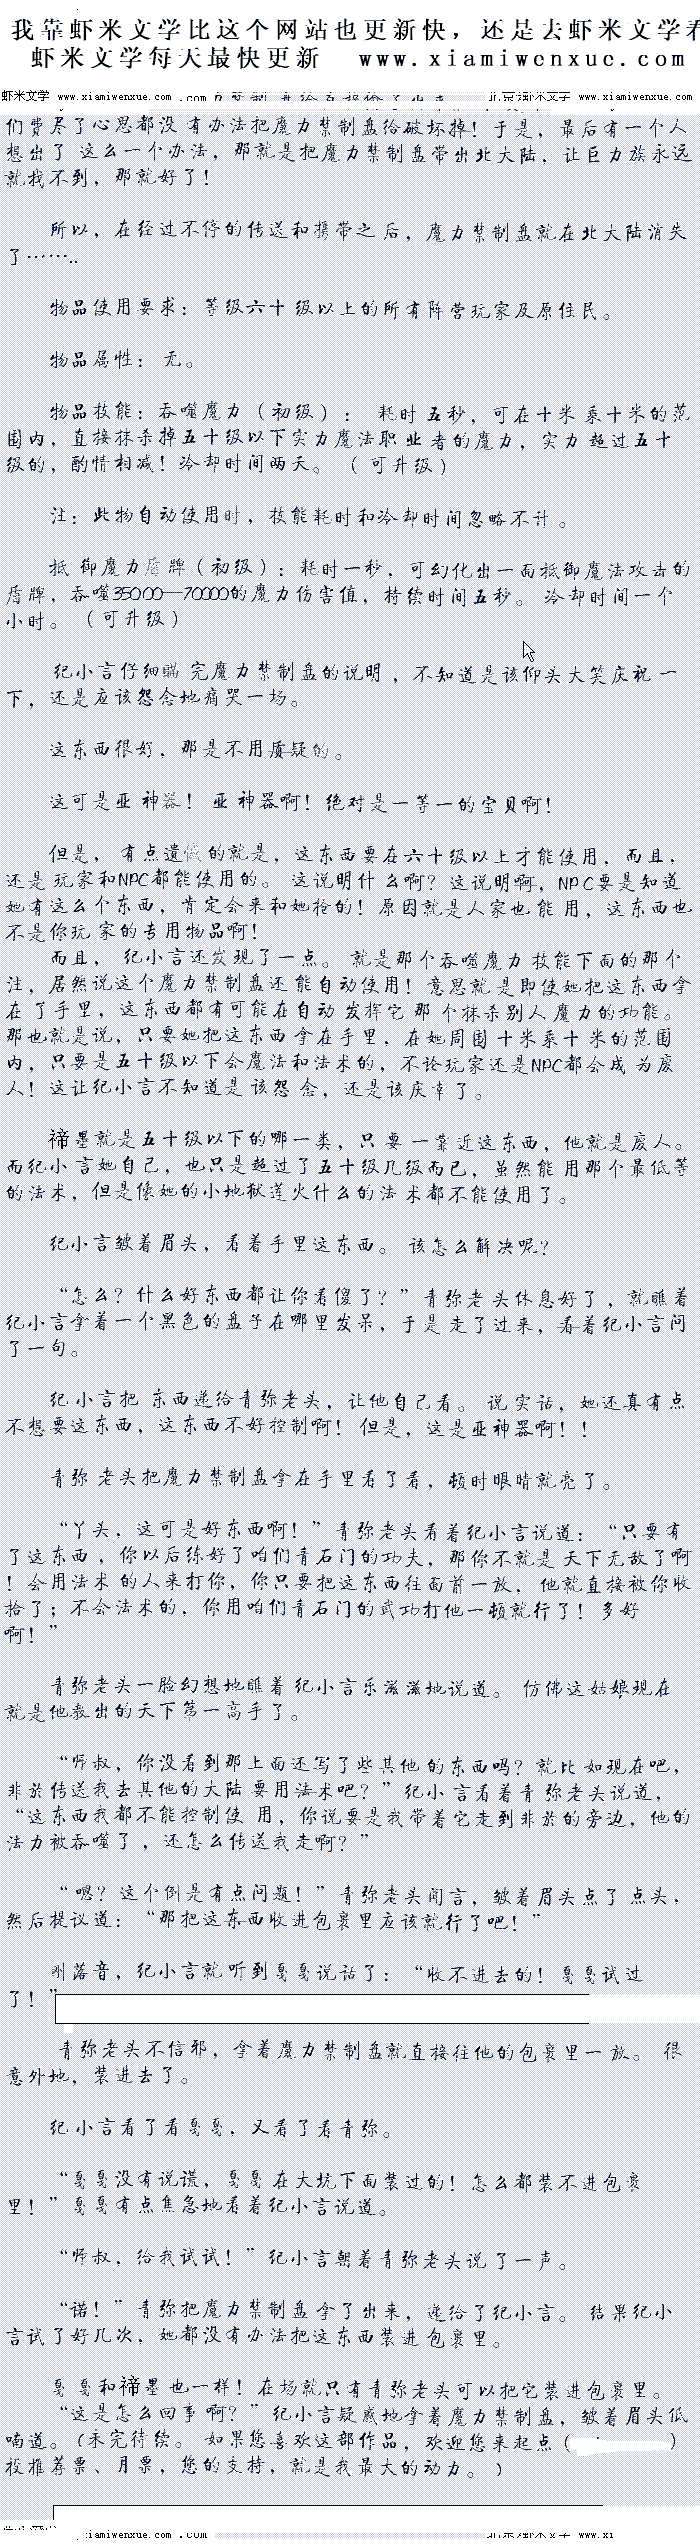 我靠虾米文学比这个网站也更新快，还是去虾米文学看
虾米文学每天最快更新 www.xiamiwenxue.com
虾米文学 www.xiamiwenxue.com .com 虾米文学 www.xiamiwenxue.com
们费尽了心思都没有办法把魔力禁制盘给破坏掉！于是，最后有一个人
想出了 这么一个办法，那就是把魔力禁制盘带出北大陆，让巨力族永远
就找不到，那就好了！
所以，在经过不停的传送和携带之后，魔力禁制盘就在北大陆消失
了……..
物品使用要求：等级六十级以上的所有阵营玩家及原住民。
物品属性： 无。
物品技能：吞噬魔力（初级）： 耗时五秒，可在十米乘十米的范
围内，直接抹杀掉五十级以下实力魔法职业者的魔力，实力超过五十
级的，酌情相减！冷却时间两天。（可升级）
注：此物自动使用时，技能耗时和冷却时间忽略不计。
抵御魔力盾牌（初级）：耗时一秒，可幻化出一面抵御魔法攻击的
盾牌，吞噬35000—70000的魔力伤害值，持续时间五秒。 冷却时间一个
小时。（可升级）
纪小言仔细瞄完魔力禁制盘的说明，不知道是该仰头大笑庆祝一
下，还是应该怨念地痛哭一场。
这东西很好，那是不用质疑的。
这可是亚神器！ 亚神器啊！绝对是一等一的宝贝啊！
但是， 有点遗憾的就是，这东西要在六十级以上才能使用，而且，
还是玩家和NPC都能使用的。 这说明什么啊？这说明啊，NPC要是知道
她有这么个东西，肯定会来和她抢的！原因就是人家也能用，这东西也
不是你玩家的专用物品啊！
而且， 纪小言还发现了一点。 就是那个吞噬魔力技能下面的那个
注，居然说这个魔力禁制盘还能自动使用！意思就是即使她把这东西拿
在了手里，这东西都有可能在自动发挥它那个抹杀别人魔力的功能。
那也就是说，只要她把这东西拿在手里，在她周围十米乘十米的范围
内，只要是五十级以下会魔法和法术的，不论玩家还是NPC都会成为废
人！这让纪小言不知道是该怨念，还是该庆幸了。
褅墨就是五十级以下的哪一类，只要一靠近这东西，他就是废人。
而纪小言她自己，也只是超过了五十级几级而已，虽然能用那个最低等
的法术，但是像她的小地狱莲火什么的法术都不能使用了。
纪小言皱着眉头，看着手里这东西。 该怎么解决呢？
“怎么？什么好东西都让你看傻了？”青弥老头休息好了，就瞧着
纪小言拿着一个黑色的盘子在哪里发呆，于是走了过来，看着纪小言问
了一句。
纪小言把东西递给青弥老头，让他自己看。 说实话，她还真有点
不想要这东西，这东西不好控制啊！但是，这是亚神器啊！！
青弥老头把魔力禁制盘拿在手里看了看，顿时眼睛就亮了。
“丫头，这可是好东西啊！”青弥老头看着纪小言说道：“只要有
了这东西，你以后练好了咱们青石门的功夫，那你不就是天下无敌了啊
！会用法术的人来打你，你只要把这东西往面前一放， 他就直接被你收
拾了；不会法术的，你用咱们青石门的武功打他一顿就行了！多好
啊！”
青弥老头一脸幻想地瞧着纪小言乐滋滋地说道。 仿佛这姑娘现在
就是他教出的天下第一高手了。
“师叔，你没看到那上面还写了些其他的东西吗？就比如现在吧，
非於传送我去其他的大陆要用法术吧？”纪小言看着青弥老头说道，
“这东西我都不能控制使用，你说要是我带着它走到非於的旁边，他的
法力被吞噬了，还怎么传送我走啊？”
“嗯？这个倒是有点问题！”青弥老头闻言，皱着眉头点了点头，
然后提议道：“那把这东西收进包裹里应该就行了吧！”
刚落音，纪小言就听到戛戛说话了：“收不进去的！戛戛试过
了！”
青弥老头不信邪，拿着魔力禁制盘就直接往他的包裹里一放。 很
意外地，装进去了。
纪小言看了看戛戛，又看了看青弥。
“戛戛没有说谎，戛戛在大坑下面装过的！怎么都装不进包裹
里！”戛戛有点焦急地看着纪小言说道。
“师叔，给我试试！”纪小言朝着青弥老头说了一声。
“诺！”青弥把魔力禁制盘拿了出来，递给了纪小言。 结果纪小
言试了好几次，她都没有办法把这东西装进包裹里。
戛戛和褅墨也一样！在场就只有青弥老头可以把它装进包裹里。
“这是怎么回事啊？”纪小言疑惑地拿着魔力禁制盘，皱着眉头低
喃道。（未完待续。 如果您喜欢这部作品，欢迎您来起点（ ）
投推荐票、月票，您的支持，就是我最大的动力。）
xiamiwenxue.com .com